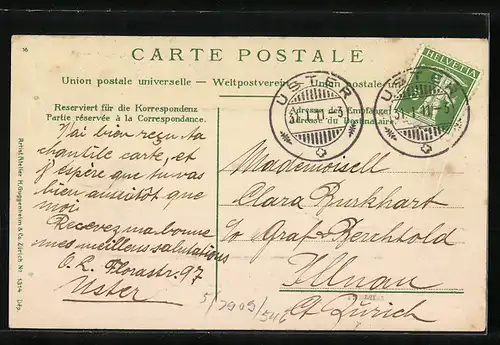 CARTE POSTALE
Union postale universelle — Weltpostverein — Union postale
Reserviert für die Korrespondenz
Partie réservée à la Correspondance.
Adresse des Empfängers
Adresse du Destinataire
HELVETIA
USTER
USTER
J'ai bien reçu ta
chantile carte, et
j'espère que tu vas
bien aussitôt que
moi
Recevez ma bonne
mes meilleus salutations
O. L. Florastr. 97
Uster
Mademoisell
Clara Burkhart
c/o Graf-Berchtold
Illnau
Ct. Zürich
5/2909/546
H. Guggenheim & Co. Zürich Nr. 1314 Dép.